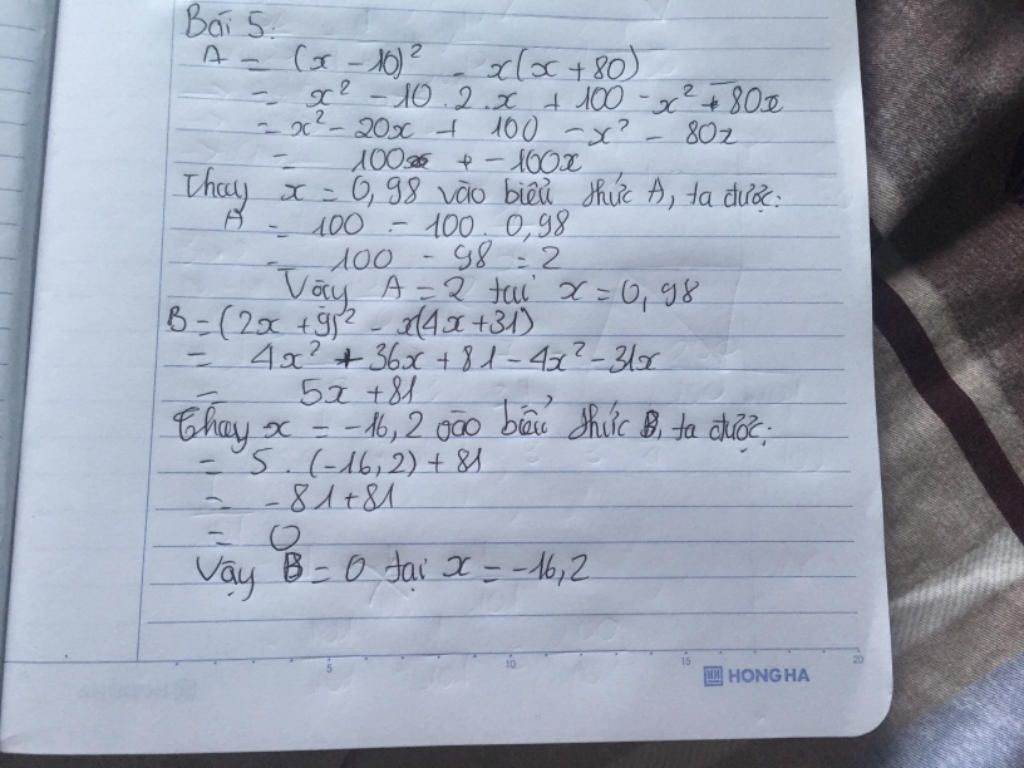 Bài 5:
A = (x - 10)² - x(x + 80)
= x² - 10 . 2 . x + 100 - x² - 80x
= x² - 20x + 100 - x² - 80x
= 100 - 100x
Thay x = 0,98 vào biểu thức A, ta được:
A = 100 - 100 . 0,98
= 100 - 98 = 2
Vậy A = 2 tại x = 0,98
B = (2x + 9)² - x(4x + 31)
= 4x² + 36x + 81 - 4x² - 31x
= 5x + 81
Thay x = -16,2 vào biểu thức B, ta được:
= 5 . (-16,2) + 81
= -81 + 81
= 0
Vậy B = 0 tại x = -16,2
5 10 15 20
HONG HA